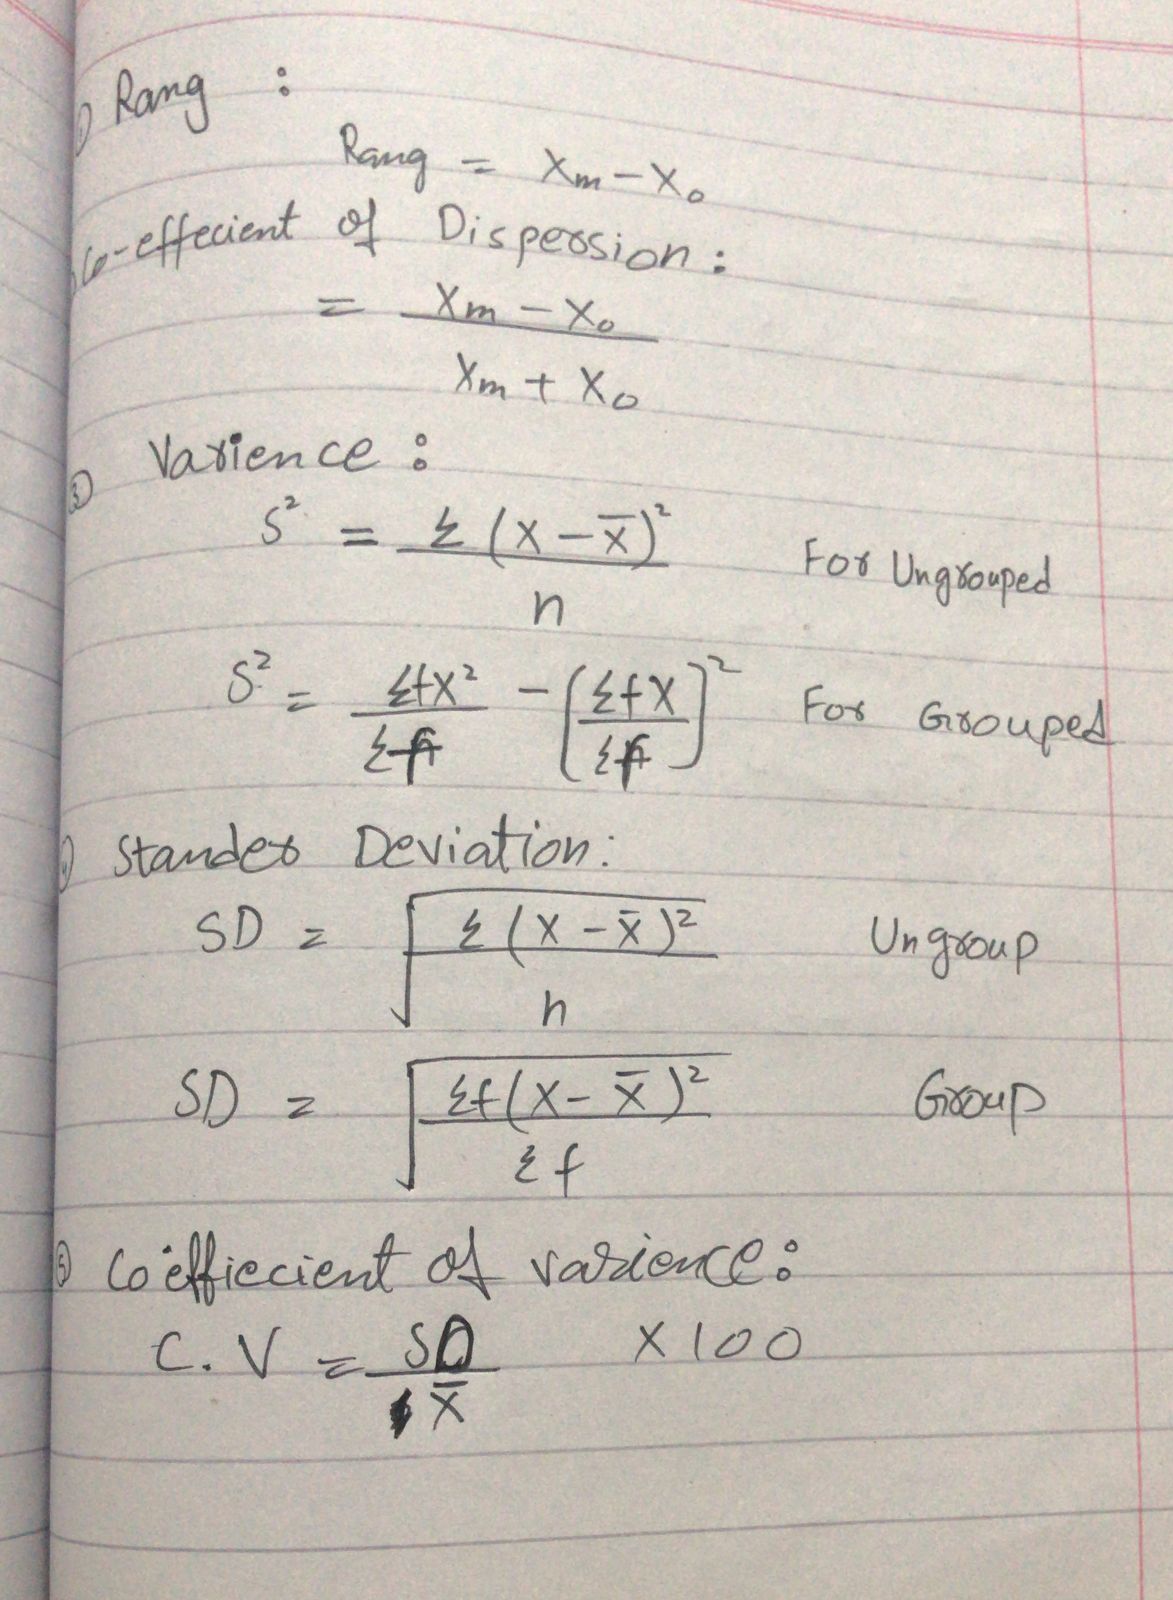 ① Rang :
Rang = Xm - X₀
Co-effecient of Dispersion :
= Xm - X₀ / Xm + X₀
③ Varience :
S² = Σ (X - X̄)² / n For Ungrouped
S² = ΣfX² / Σf - (ΣfX / Σf)² For Grouped
Stander Deviation :
SD = √ Σ (X - X̄)² / n Ungroup
SD = √ Σf (X - X̄)² / Σf Group
⑤ Coeffiecient of varience :
C.V = SD / X̄ × 100